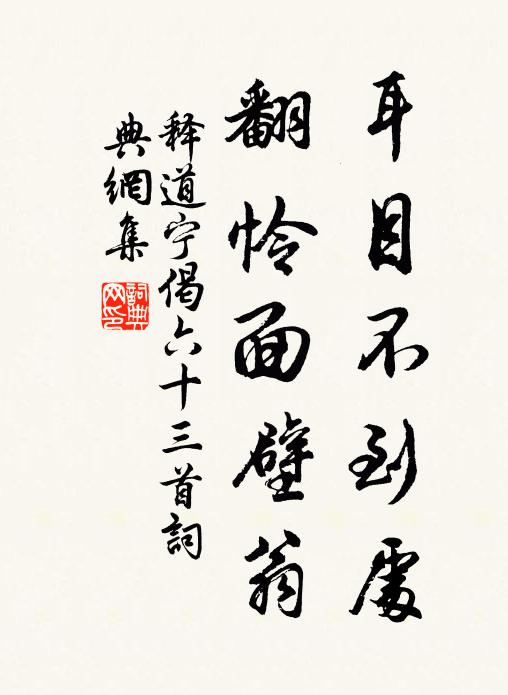 耳目不到處
翻怜面壁翁
释道宁偈六十三首詞
典網集
詞典网印